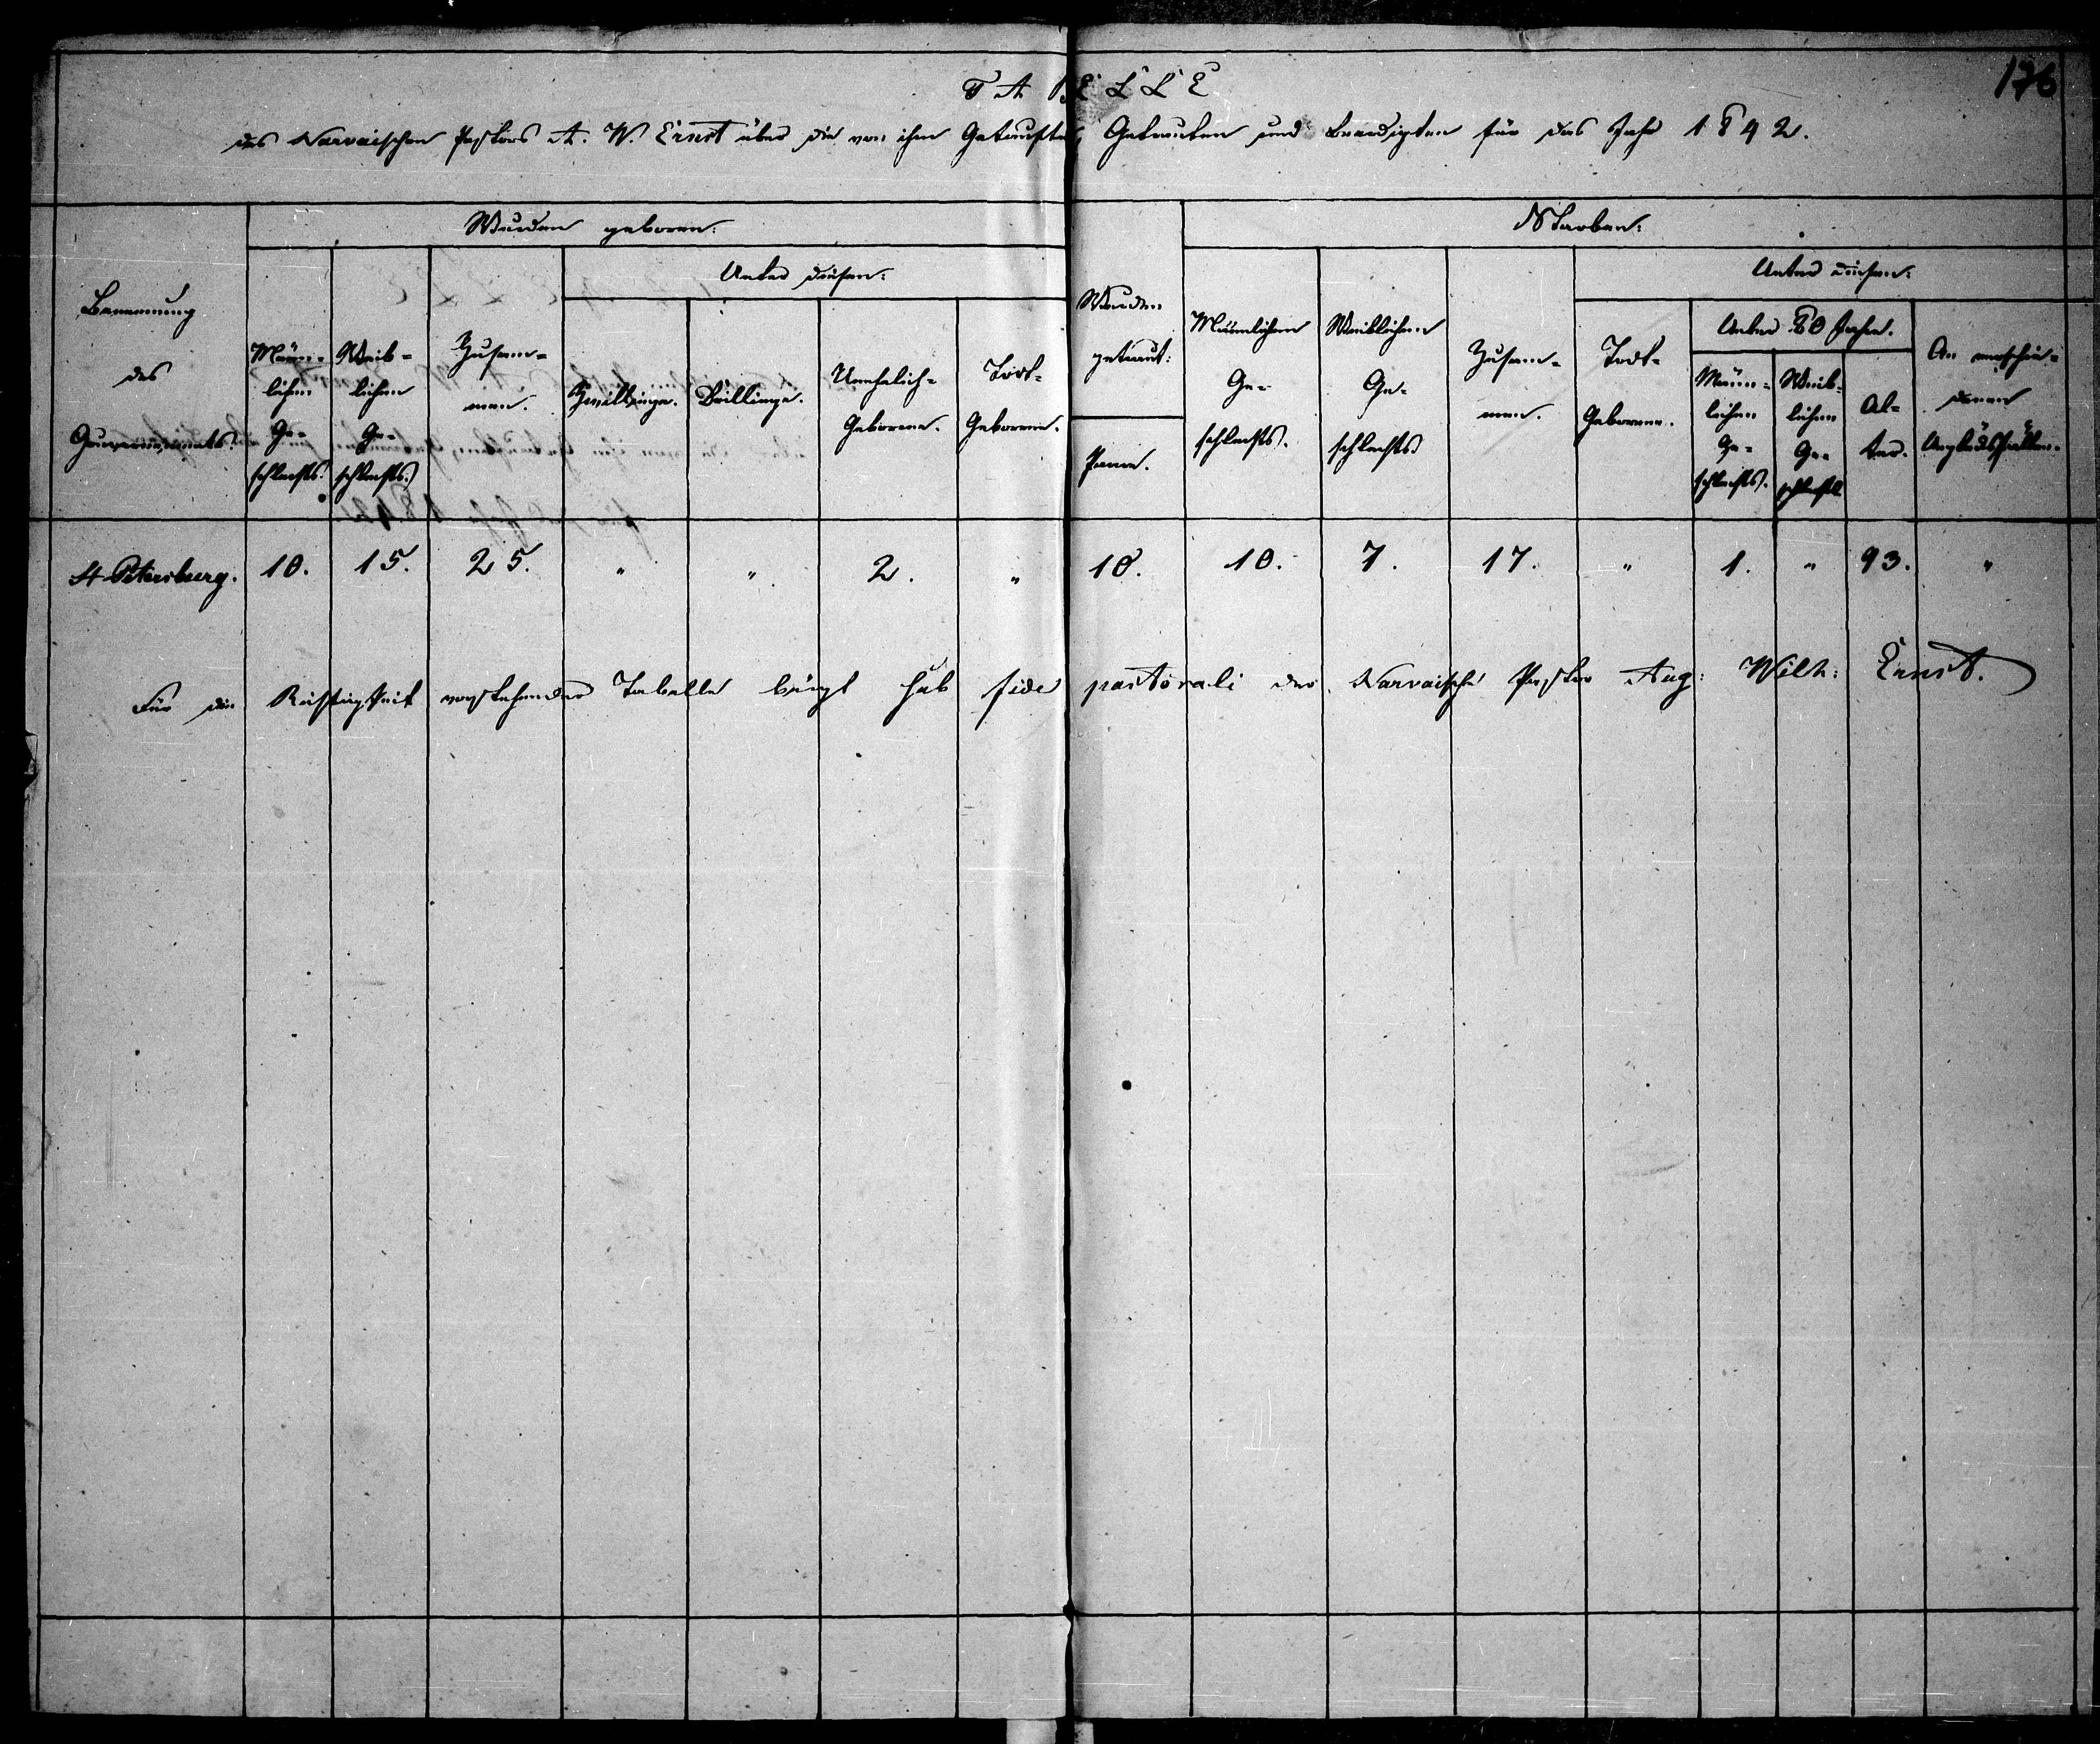 176
TABELLE
des Narvaischen Pastors A. W. Ernst über die von ihm Getauften, Getrauten und Beerdigten für das Jahr 1842.
Benennung
des
Gouvernements.
Wurden geboren:
Männ-
lichen
Ge-
schlechts.
Weib-
lichen
Ge-
schlechts.
Zusam-
men.
Unter diesen:
Zwillinge.
Drillinge.
Unehelich-
Geborene.
Todt-
Geborene.
Wurden
getraut:
Paare.
Starben:
Männlichen
Ge-
schlechts.
Weiblichen
Ge-
schlechts.
Zusam-
men.
Unter diesen:
Todt-
Geborene.
Ueber 80 Jahre.
Männ-
lichen
Ge-
schlechts.
Weib-
lichen
Ge-
schlechts
Al-
ter.
An verschie-
denen
Unglücksfällen.
St Petersburg. 10. 15. 25. " " 2. " 10. 10. 7. 17. " 1. " 93. "
Für die Richtigkeit vorstehender Tabelle bürgt sub fide pastorali der Narvaische Pastor Aug: Wilh: Ernst.